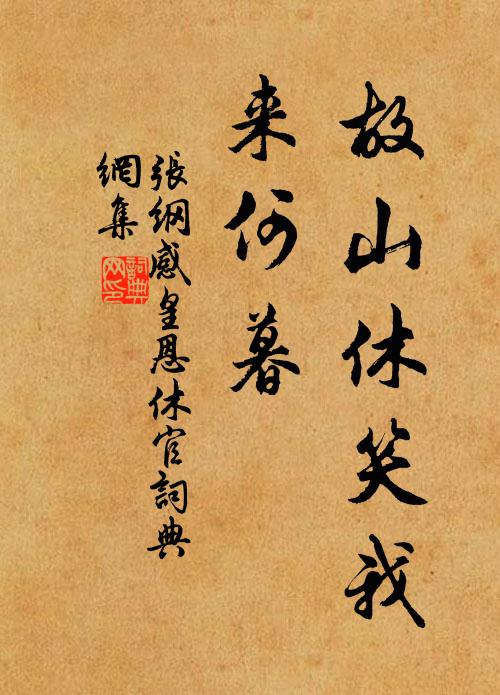 故山休笑我
来何暮
張纲感皇恩休官詞典
網集
詞典
网印